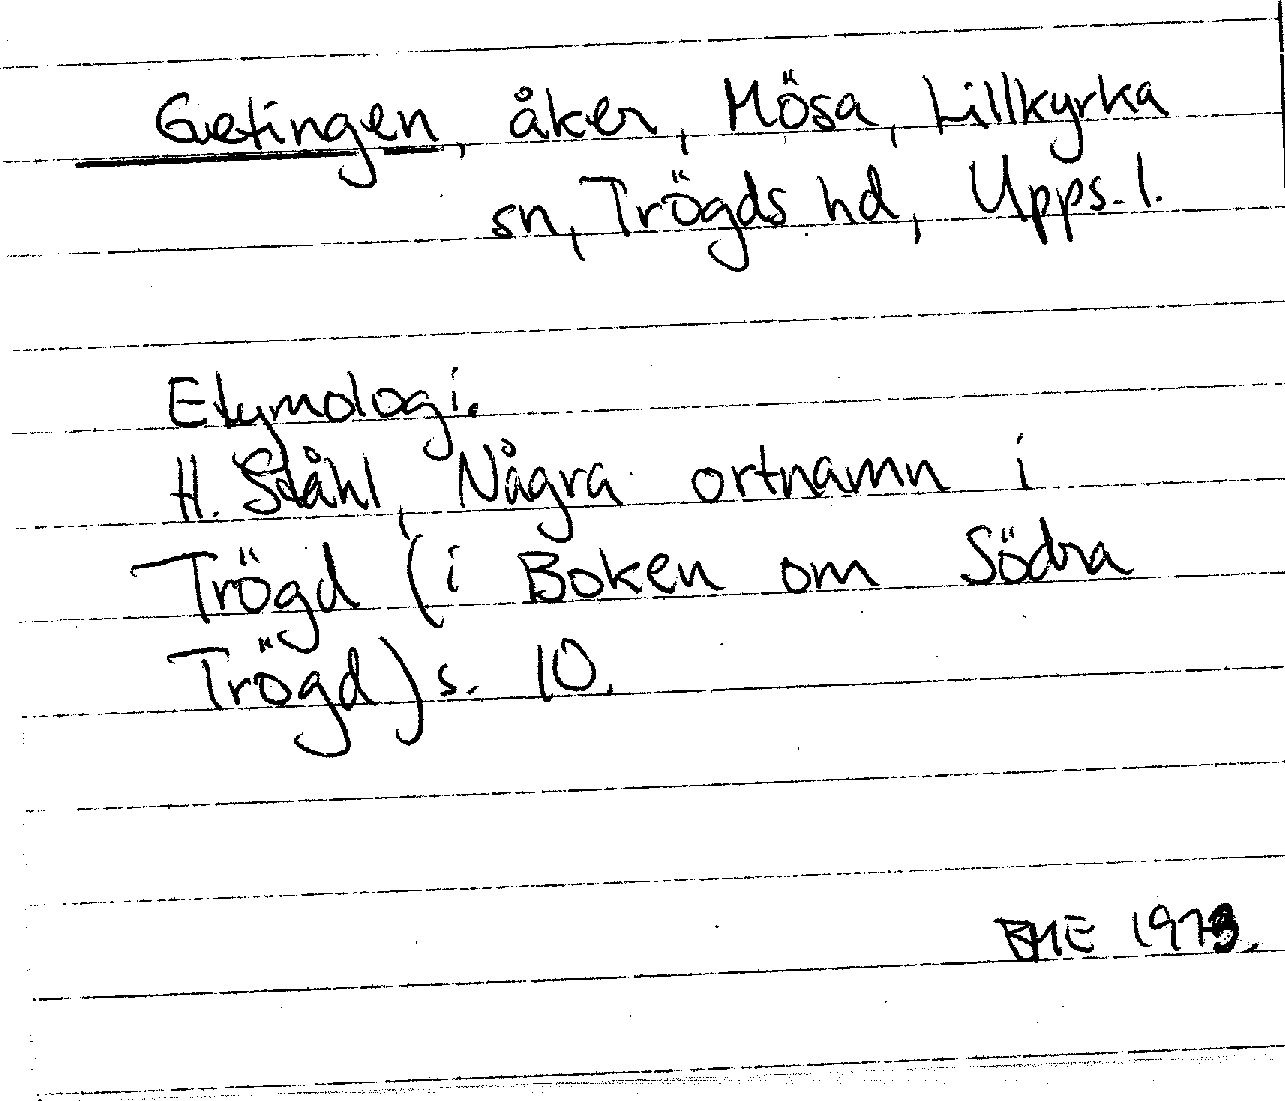 Getingen, åker, Mösa, Lillkyrka
sn, Trögds hd, Upps. l.
Etymologi.
H. Ståhl, Några ortnamn i
Trögd (i Boken om Södra
Trögd) s. 10.